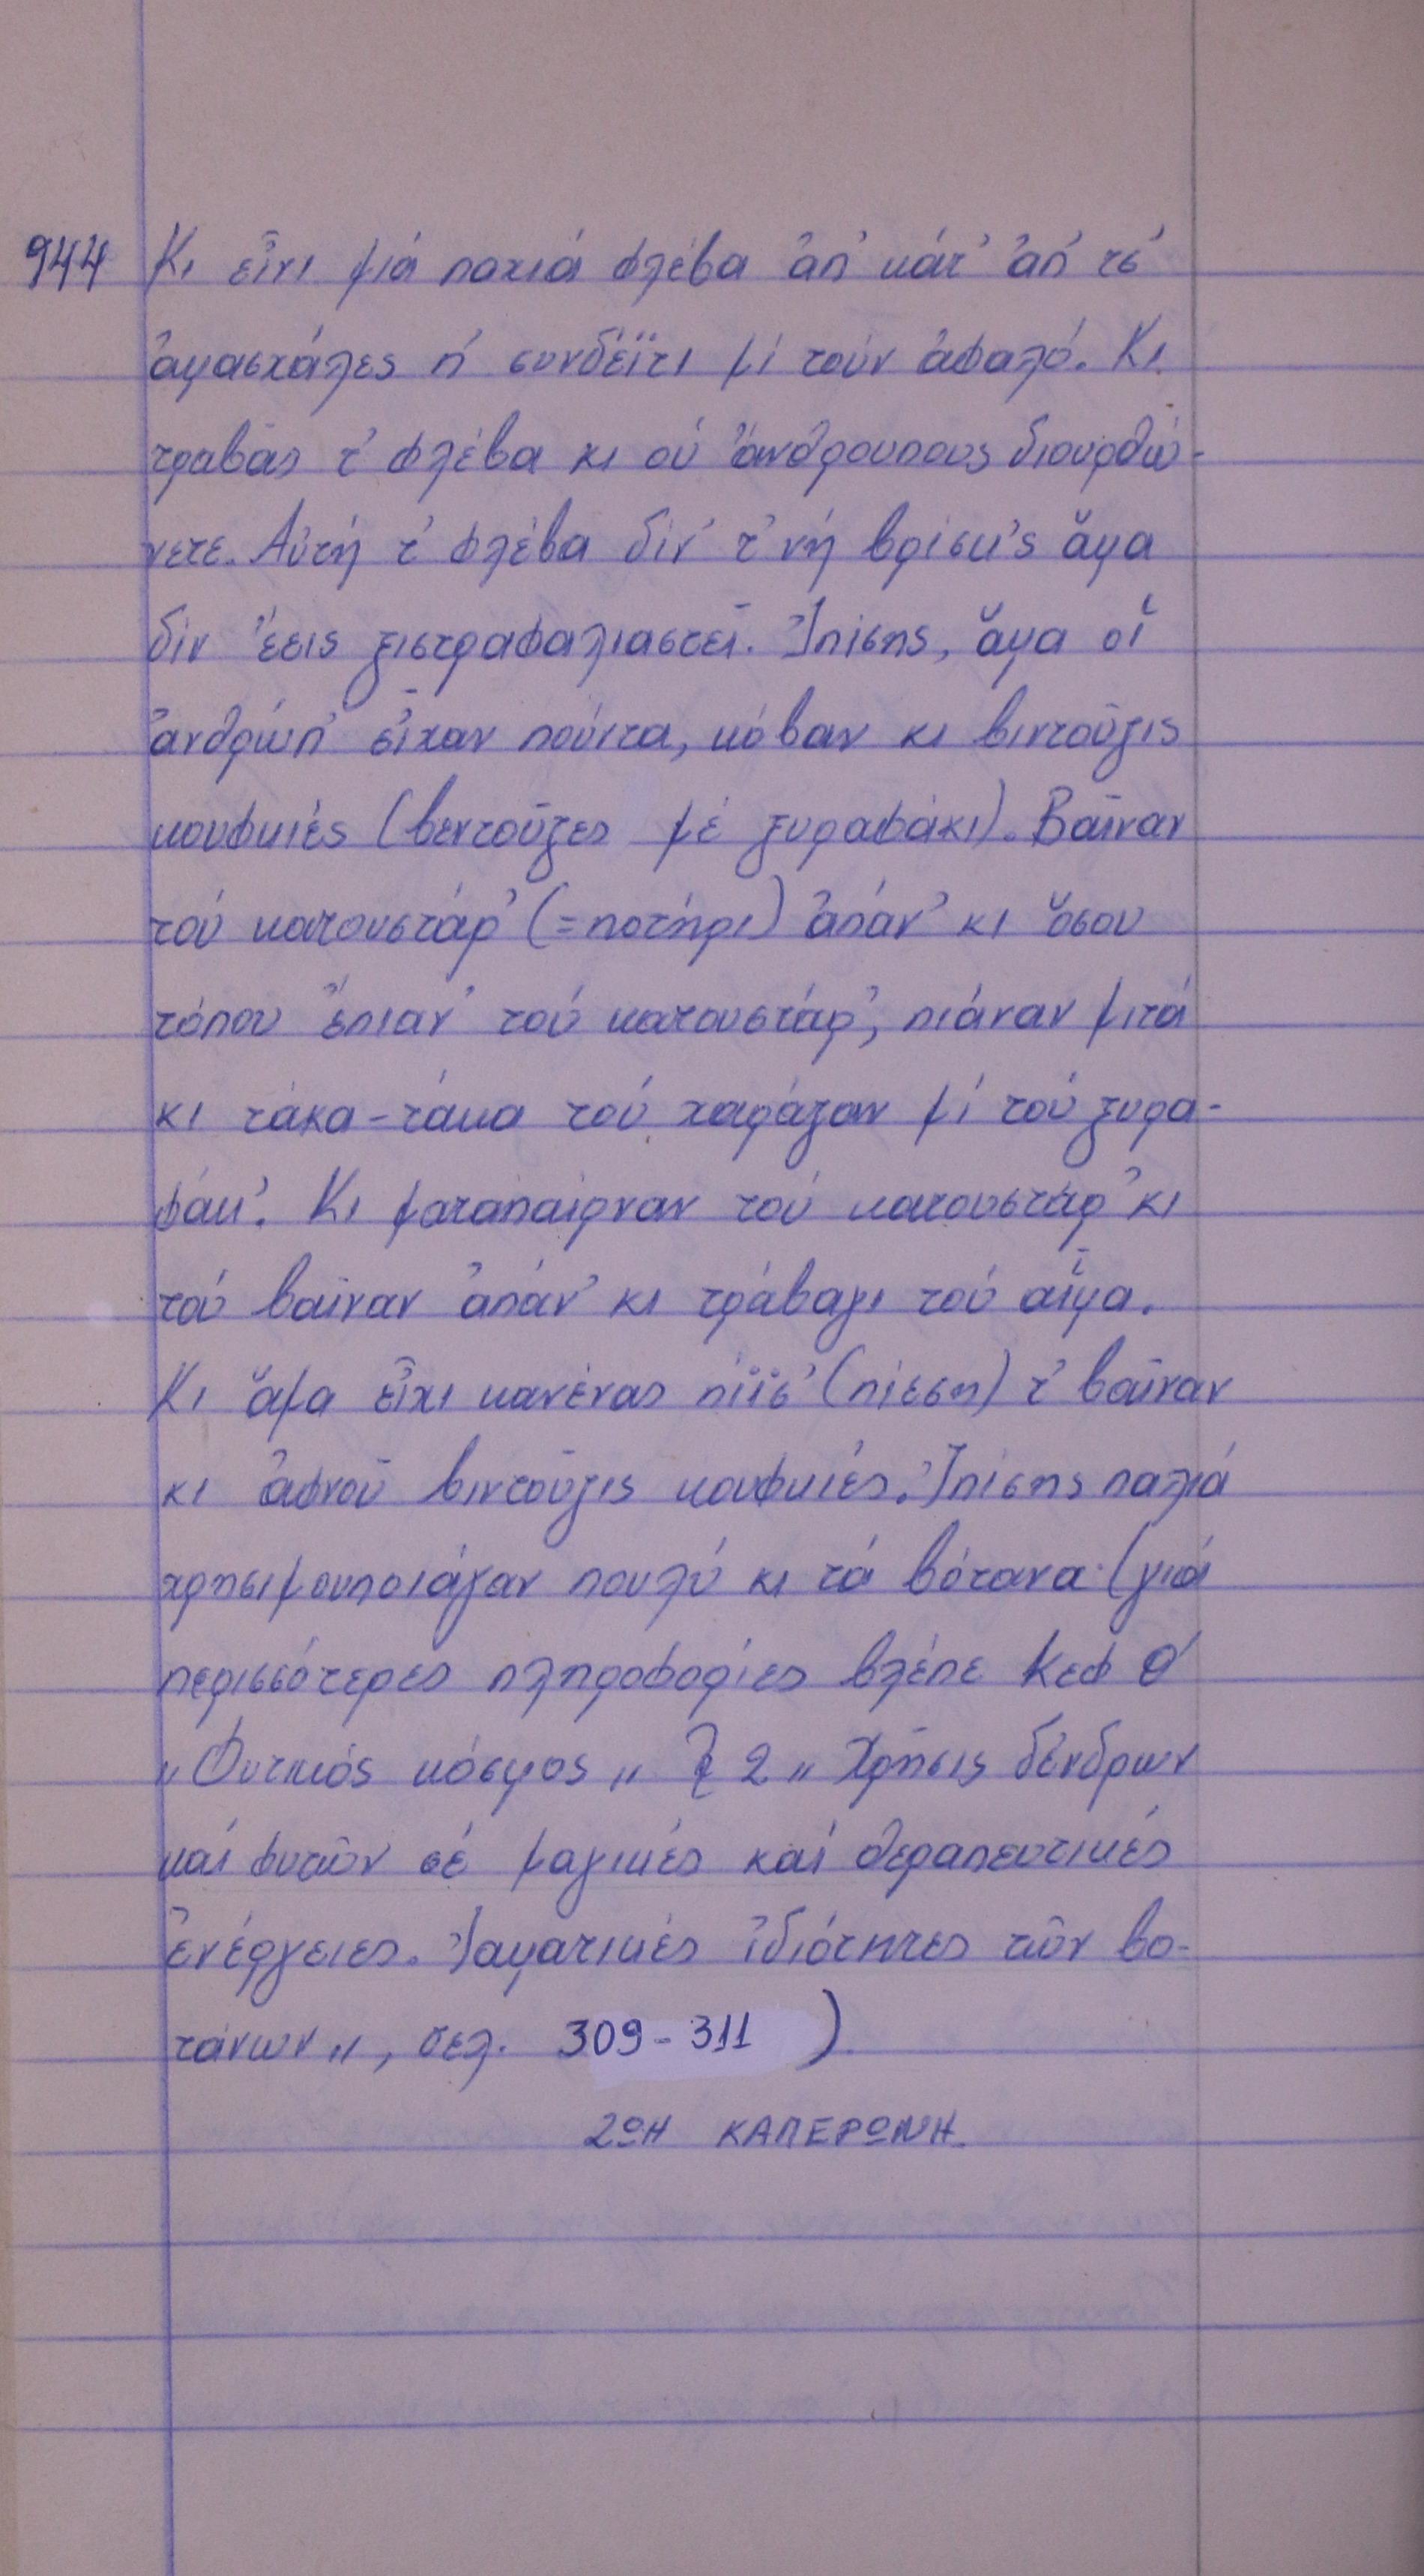 944 Κι εἶνι μιά παχιά φλέβα ἀπ' κάτ' ἀπ' τσ'
ἀμασχάλες π' συνδέϊτι μί τούν ἀφαλό. Κι
τραβᾶς τ' φλέβα κι οὐ ἄνθρουπους διουρθώ-
νετε. Αὐτή τ' φλέβα δίν' τ' νή βρίσκ'ς ἄμα
δίν ἔεις ξιστραφαλιαστεῖ. Ἰπίσης, ἄμα οἵ
ἀνθρώπ' εἶχαν πούντα, κόβαν κι βιντοῦζις
κουφκιές (βεντοῦζες μέ ξυραφάκι). Βαῖναν
τού κατουστάρ' (=ποτήρι) ἀπάν' κι ὅσου
τόπου ἔπιαν' τού κατουστάρ', πιάναν μιτά
κι τάκα-τάκα τού χαράζαν μί τού ξυρα-
φάκ'. Κι ματαπαίρναν τού κατουστάρ' κι
τού βαῖναν ἀπάν' κι τράβαγι τού αἷμα.
Κι ἄμα εἶχι κανένας πίϊσ' (πίεση) τ' βαῖναν
κι ἀφνοῦ βιντοῦζις κουφκιές. Ἰπίσης παλιά
χρησιμουποιάγαν πουλύ κι τά βότανα (γιά
περισσότερες πληροφορίες βλέπε Κεφ Θ'
„Φυτικός κόσμος„ § 2 „Χρῆσις δένδρων
καί φυτῶν σέ μαγικές καί θεραπευτικές
ἐνέργειες. Ἰαματικές ἰδιότητες τῶν βο-
τάνων„, σελ. 309-311 )
ΖΩΗ ΚΑΠΕΡΩΝΗ